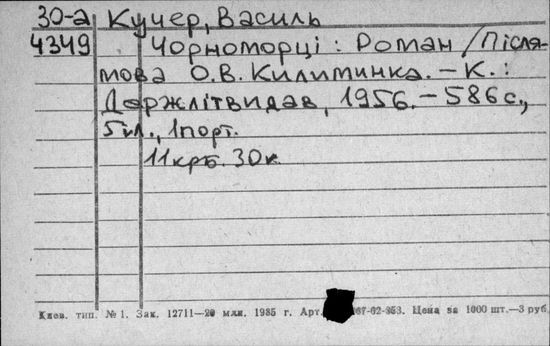 30-а Кучер, Василь
4349 Чорноморці : Роман / Після-
мова О.В. Килимника. – К. :
Держлітвидав, 1956. – 586 с.,
5 іл., 1 порт.
11 крб. 30 к.
Киев. тип. № 1. Зак. 12711—20 млн. 1985 г. Арт. 67-62-953. Цена за 1000 шт.—3 руб.